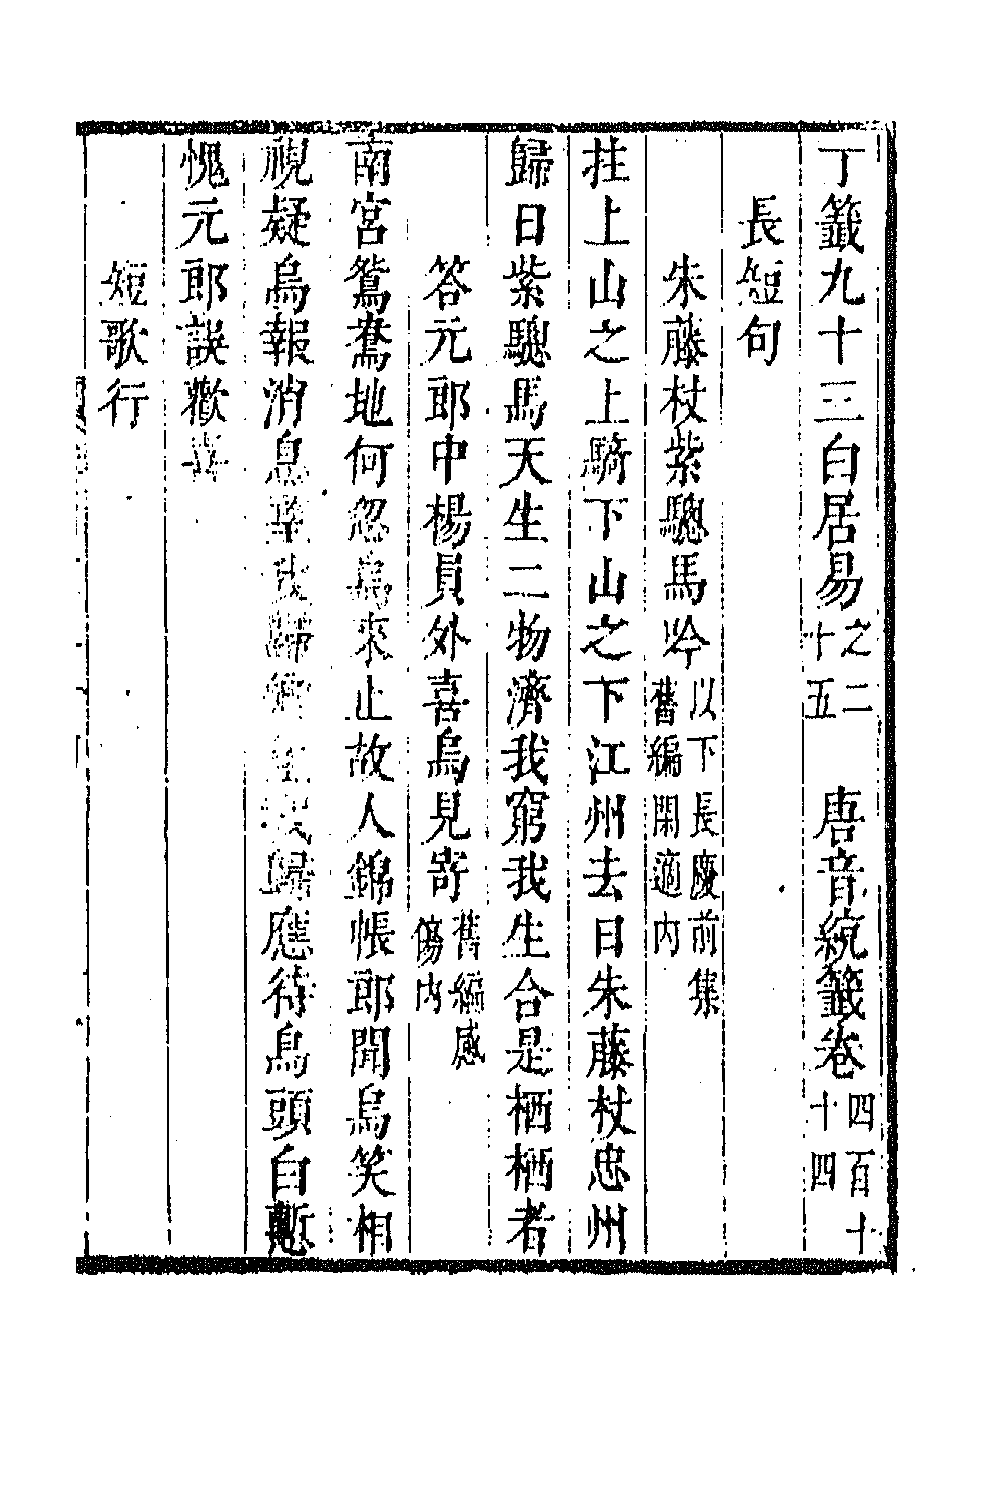 丁籤九十三白居易之二十五　唐音統籤卷四百十十四
長短句
朱藤杖紫驄馬吟以下長慶前集舊編閑適內
拄上山之上騎下山之下江州去日朱藤杖忠州
歸日紫驄馬天生二物濟我窮我生合是栖栖者
答元郎中楊員外喜烏見寄舊編感傷內
南宮鴛鴦地何忽烏來止故人錦帳郎聞烏笑相
視疑烏報消息望我歸鄉里我歸應待烏頭白慙
愧元郎誤歡喜
短歌行